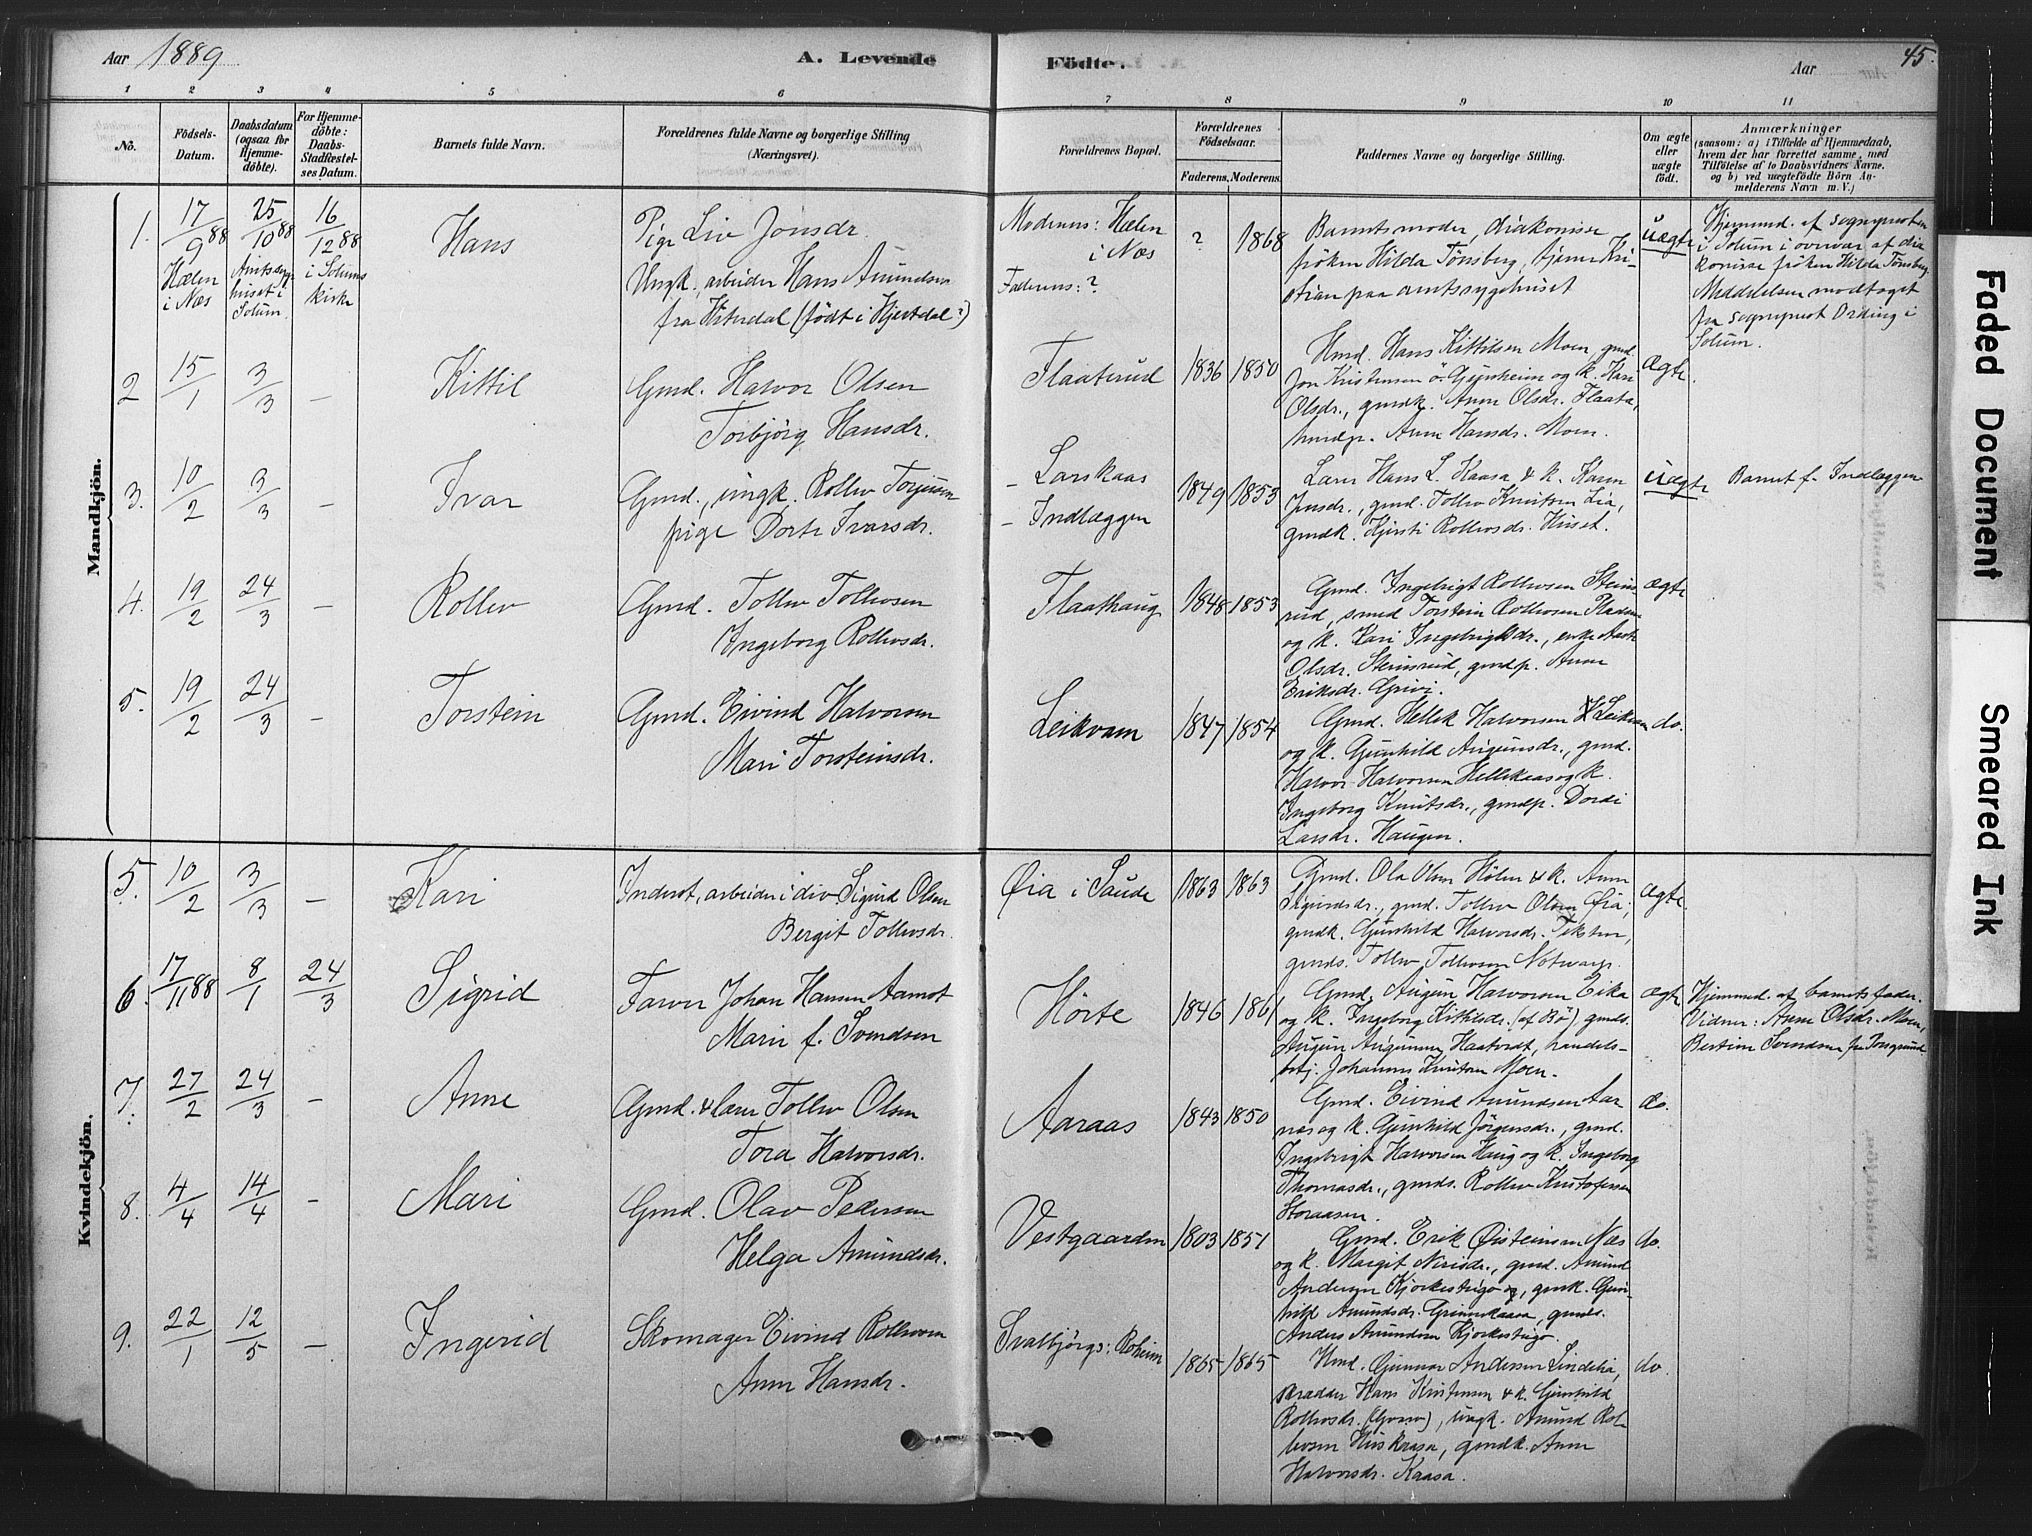 Aar 1889
A. Levende Födte.
Aar
45.
1 2 3 4 5 6 7 8 9 10 11
No.
Födsels-Datum.
Daabsdatum (ogsaa for Hjemme-döbte).
For Hjemme-döbte: Daabs-Stadfæstel-ses Datum.
Barnets fulde Navn.
Forældrenes fulde Navne og borgerlige Stilling (Næringsvei).
Forældrenes Bopæl.
Forældrenes Födselsaar.
Faderens. Moderens.
Faddernes Navne og borgerlige Stilling.
Om ægte eller uægte födt.
Anmærkninger
(saasom: a) i Tilfælde af Hjemmedaab,
hvem der har forrettet samme, med
Tilföielse af to Daabsvidners Navne.
og b) ved uægtefödte Börn An-
melderens Navn m. V.)
Mandkjön.
1. 17/9 88 25/10 88 16/12 88
Hælen i Næs
Amtssyge huset i Solum.
i Solums kirke
Hans
Pige Liv Jonsdr.
Ungk., arbeider Hans Amundsen
fra Hiterdal (født i Hjertdal?)
Moderens: Hælen
i Næs
Faderens: ?
? 1868
Barnets moder, diakonisse
frøken Hilda Tønsberg, tjener Kri-
stian paa amtssygehuset
uægte
Hjemmed. af sogneprest
i Solum i overvær af dia
konisse frøken Hilda Tønsberg.
Meddelelsen modtaget
fra sogneprest Ording i
Solum.
2 15/1 3/3 –
Kittil
Gmd. Halvor Olsen
Torbjörg Hansdr.
Flaaterud
1836 1850
Hmd. Hans Kittilsen Moen, gmd.
Jon Kristensen ö. Gjernheim og k. Kari
Olsdr., gmdk. Anne Olsdr. Flaata,
hmdp. Anne Hansdr. Moen.
ægte.
3. 10/2 3/3 –
Ivar
Gmd., ungk. Rollev Torjusen
pige Dorte Ivarsdr.
– Larskaas
– Indlæggen
1849 1853
Lærer Hans L. Kaasa & k. Karen
Jensdr., gmd. Tollev Knutsen Lia,
gmdk. Kjersti Rollevsdr. Huset.
uægte
Barnet f. Indlæggen
4. 19/2 24/3 –
Rollev
Gmd. Tollev Tollevsen
Ingeborg Rollevsdr.
Flaathaug
1848 1853
Gmd. Ingebrigt Rollevsen Steins
rud, smed Torstein Rollevsen
og k. Kari Ingebrigtsdr., enke
Olsdr. Steinsrud, gmdp. Anne
Eriksdr. Grivi.
ægte
5. 19/2 24/3 –
Torstein
Gmd. Eivind Halvorsen
Mari Torsteinsdr.
Leikvam
1847 1854
Gmd. Hellek Halvorsen Leikvam
og k. Gunhild Augunsdr., gmd.
Halvor Halvorsen Hellekaas og k.
Ingeborg Knutsdr., gmdp. Dordi
Larsdr. Haugen.
do.
Kvindekjön.
5. 10/2 3/3 –
Kari
Inderst, arbeider i div Sigurd Olsen
Bergit Tollevsdr.
Øia i Saude
1863 1863
Gmd. Ola Olsen Holen & k. Anne
Sigurdsdr., gmd. Tollev Olsen Øia,
gmdk. Gunhild Halvorsdr. Teksten,
gmds. Tollev Tollevsen
ægte.
6. 17/11 88 8/1 24/3
Sigrid
Farver Johan Hansen Aamot
Marie f. Svendsen
Hörte
1846 1861
Gmd. Augun Halvorsen Eika
og k. Ingeborg Kittilsdr. (af Bö), gmds.
Augun Augunsen Haatvedt, handels-
betj. Johannes Knutsen Moen.
ægte
Hjemmed. af barnets fader.
Vidner: Anne Olsdr. Moen,
Bertine Svendsen fra Porsgrund
7. 27/2 24/3 –
Anne
Gmd. & lærer Tollev Olsen
Tora Halvorsdr.
Aaraas
1843 1850
Gmd. Eivind Amundsen Aar
nes og k. Gunhild Jörgensdr., gmd.
Ingebrigt Halvorsen Haug og k. Ingeborg
Thomasdr., gmds. Rollev Kristofersen
Storaasen.
do.
8. 4/4 14/4 –
Mari
Gmd. Olav Pedersen
Helga Amundsdr.
Vestgaarden
1803 1851
Gmd. Erik Østeinsen Næs
og k. Margit Nirisdr., gmd. Amund
Andersen Kjorkestugo og, gmdk. Gun-
hild Amundsdr. Grimekaasa, gmds.
Anders Amundsen Kjorkestugo.
do.
9. 22/1 12/5 –
Ingerid
Skomager Eivind Rollevsen
Anne Hansdr.
Svalbjörgs: Roheim
1865 1865
Hmd. Gunnar Andersen Lindelia,
skrædder Hans Kristensen & k. Gunhild
Rollevsdr., ungk. Amund Rol-
levsen Huskaasa, gmdk. Anne
Halvorsdr. Kaasa.
do.
Faded Document
Smeared Ink